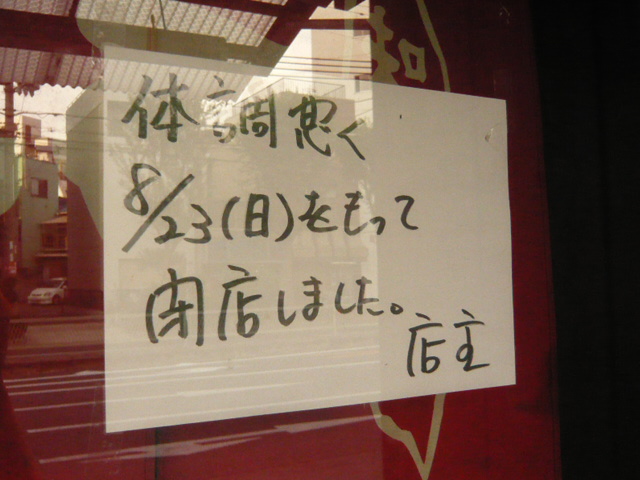 体調悪く
8/23(日)をもって
閉店しました。
店主